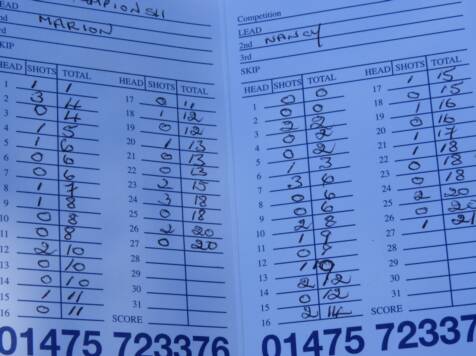 MPIONSH
EAD
MARION
3rd
SKIP
HEAD SHOTS TOTAL HEAD SHOTS TOTAL
1 1 1 17 0 11
2 3 4 18 1 12
3 0 4 19 0 12
4 1 5 20 1 13
5 1 6 21 0 13
6 0 6 22 0 13
7 0 6 23 2 15
8 1 7 24 3 18
9 1 8 25 0 18
10 0 8 26 2 20
11 0 8 27 0 20
12 2 10 28
13 0 10 29
14 0 10 30
15 1 11 31
16 0 11 SCORE
01475 723376
Competition
LEAD
2nd NANCY
3rd
SKIP
HEAD SHOTS TOTAL HEAD SHOTS TOTAL
1 0 0 17 1 15
2 0 0 18 0 15
3 2 2 19 1 16
4 0 2 20 0 16
5 0 2 21 1 17
6 1 3 22 1 18
7 3 6 23 0 18
8 0 6 24 0 18
9 0 6 25 2 20
10 2 8 26 0 20
11 1 9 27 1 21
12 0 9 28
13 1 10 29
14 2 12 30
15 0 12 31
16 2 14 SCORE
01475 72337